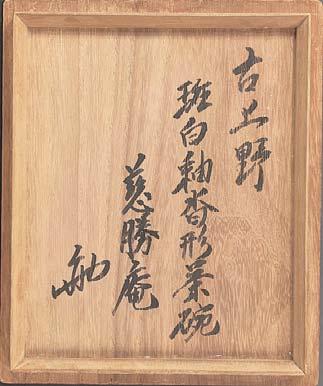 古上野
斑白釉沓形茶碗
慈勝庵